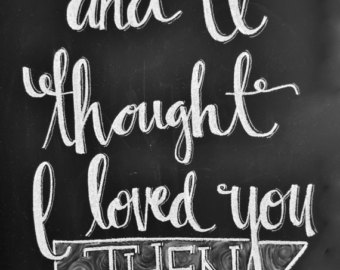 and
thought
I loved you
THEN